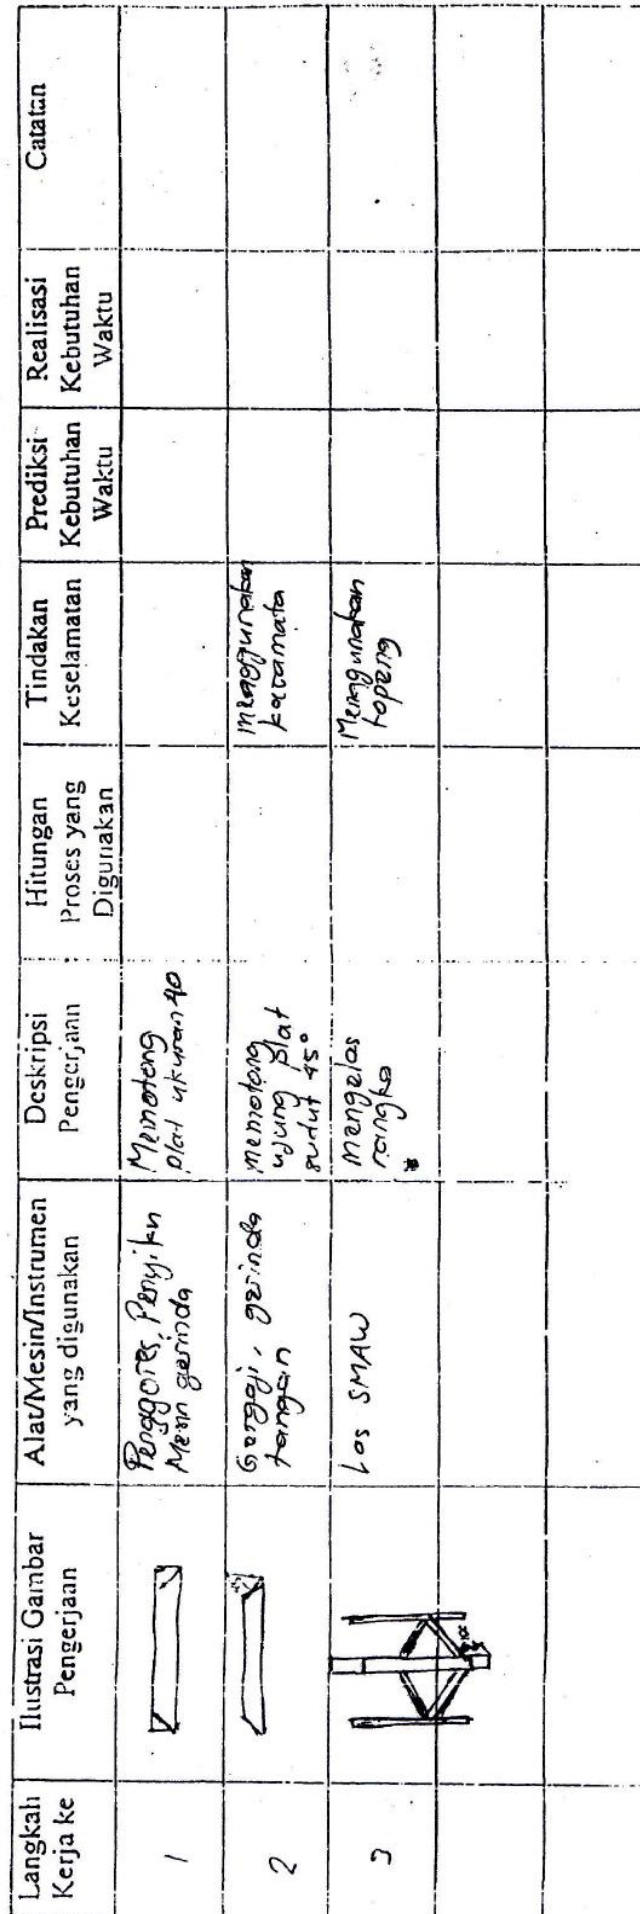 Langkah
Kerja ke
Ilustrasi Gambar
Pengerjaan
Alat/Mesin/Instrumen
yang digunakan
Deskripsi
Pengerjaan
Hitungan
Proses yang
Digunakan
Tindakan
Keselamatan
Prediksi
Kebutuhan
Waktu
Realisasi
Kebutuhan
Waktu
Catatan
1
Penggores, Penyiku
Mesin gerinda
Memotong
plat ukuran 40
2
Gergaji, gerinda
tangan
memotong
ujung plat
sudut 45°
menggunakan
kacamata
3
Las SMAW
mengelas
rangka
Menggunakan
topeng